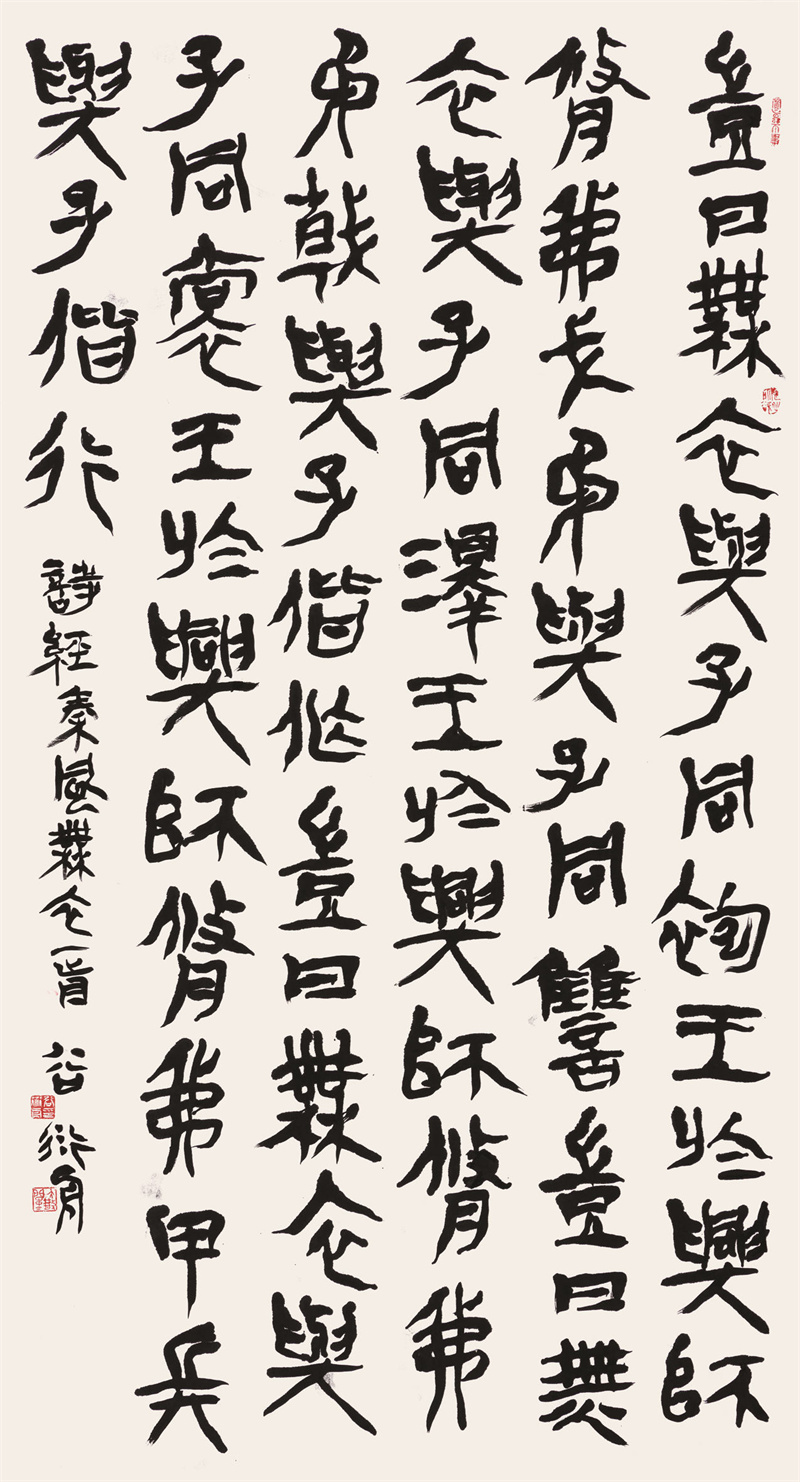 豈曰無衣與子同袍王於興師
脩我戈矛與子同讎豈曰無
衣與子同澤王於興師脩我
矛戟與子偕作豈曰無衣與
子同裳王於興師脩我甲兵
與子偕行 詩經秦風無衣一首 谷